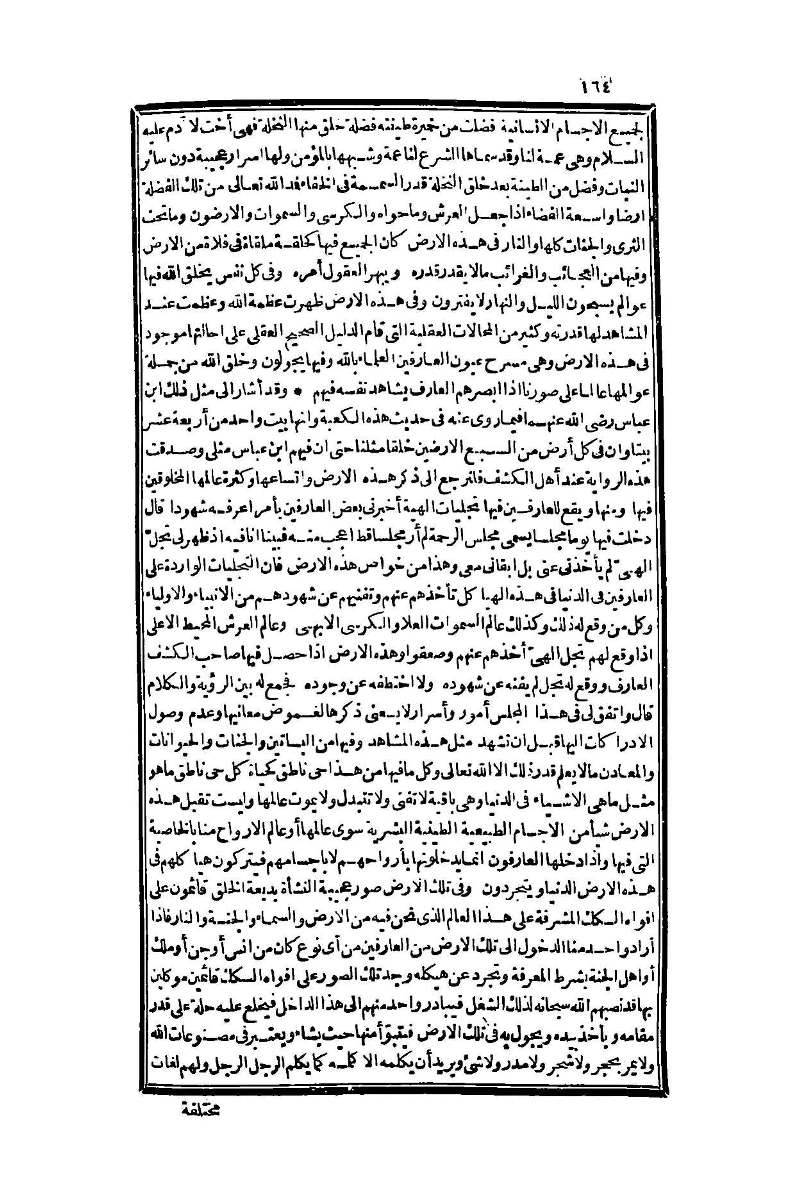 ١٦٤
لجميع الاجسام الانسانية فضلت من خميرة طينته فضلة خلق منها النخلة فهى أخت لآدم عليه
السلام وهى عمة لنا وقد سماها الشرع لنا عمة وشبهها بالمؤمن ولها اسرار عجيبة دون سائر
النبات وفضل من الطينة بعد خلق النخلة قدر السمسمة فى الخفاء فمد الله تعالى من تلك الفضلة
ارضا واسعة الفضاء اذا جعل العرش وما حواه والكرسى والسموات والارضون وما تحت
الثرى والجنات كلها والنار فى هذه الارض كان الجميع فيها كحلقة ملقاة فى فلاة من الارض
وفيها من العجائب والغرائب مالا يقدر قدره ويبهر العقول أمره وفى كل نفس يخلق الله فيها
عوالم يسبحون الليل والنهار لا يفترون وفى هذه الارض ظهرت عظمة الله وعظمت عند
المشاهد لها قدرته وكثير من المحالات العقلية التى قام الدليل الصحيح العقلى على احالتها موجود
فى هذه الارض وهى مسرح عيون العارفين العلماء بالله وفيها يجولون وخلق الله من جملة
عوالمها عالما على صورنا اذا ابصرهم العارف يشاهد نفسه فيهم * وقد أشار الى مثل ذلك ابن
عباس رضى الله عنهما فيما روى عنه فى حديث هذه الكعبة وانها بيت واحد من أربعة عشر
بيتا وان فى كل أرض من السبع الارضين خلقا مثلنا حتى ان فيهم ابن عباس مثلى وصدقت
هذه الرواية عند أهل الكشف فلنرجع الى ذكر هذه الارض واتساعها وكثرة عالمها المخلوقين
فيها ومنها ويقع للعارفين فيها تجليات الهية أخبرنى بعض العارفين بأمر اعرفه شهودا قال
دخلت فيها يوما مجلسا يسمى مجلس الرحمة لم أر مجلسا قط اعجب منه فبينا انا فيه اذ ظهر لى تجل
الهىّ لم يأخذنى عنى بل ابقانى معى وهذا من خواص هذه الارض فان التجليات الواردة على
العارفين فى الدنيا فى هذه الهيا كل تأخذهم عنهم وتفنيهم عن شهودهم من الانبياء والاولياء
وكل من وقع له ذلك وكذلك عالم السموات العلا والكرسى الابهى وعالم العرش المحيط الاعلى
اذا وقع لهم تجل الهىّ أخذهم عنهم وصعقوا وهذه الارض اذا حصل فيها صاحب الكشف
العارف ووقع له تجل لم يفنه عن شهوده ولا اختطفه عن وجوده فجمع له بين الرؤية والكلام
قال واتفق لى فى هذا المجلس أمور وأسرار لا يسعنى ذكرها لغموض معانيها وعدم وصول
الادراكات اليها قبل ان تشهد مثل هذه المشاهد وفيها من البساتين والجنات والحيوانات
والمعادن مالا يعلم قدر ذلك الا الله تعالى وكل ما فيها من هذا حى ناطق كحياة كل حى ناطق ماهو
مثل ماهى الاشياء فى الدنيا وهى باقية لا تفنى ولا تتبدل ولا يموت عالمها وليست تقبل هذه
الارض شيأ من الاجسام الطبيعية الطينية البشرية سوى عالمها أو عالم الارواح منا بالخاصية
التى فيها واذا دخلها العارفون انما يدخلونها بأرواحهم لا باجسامهم فيتركون هيا كلهم فى
هذه الارض الدنيا ويتجردون وفى تلك الارض صور عجيبة النشأة بديعة الخلق قائمون على
افواه السكك المشرفة على هذا العالم الذى نحن فيه من الارض والسماء والجنة والنار فاذا
أراد واحد منا الدخول الى تلك الارض من العارفين من أى نوع كان من انس أو جن أو ملك
أو اهل الجنة بشرط المعرفة وتجرد عن هيكله وجد تلك الصور على افواه السكك قائمين موكلين
بها قد نصبهم الله سبحانه لذلك الشغل فيبادر واحد منهم الى هذا الداخل فيخلع عليه حلة على قدر
مقامه ويأخذ بيده ويجول به فى تلك الارض فيتبوّأ منها حيث يشاء ويعتبر فى مصنوعات الله
ولا يمر بحجر ولا شجر ولا مدر ولا شئ ويريد أن يكلمه الا كلمه كما يكلم الرجل الرجل ولهم لغات
مختلفة